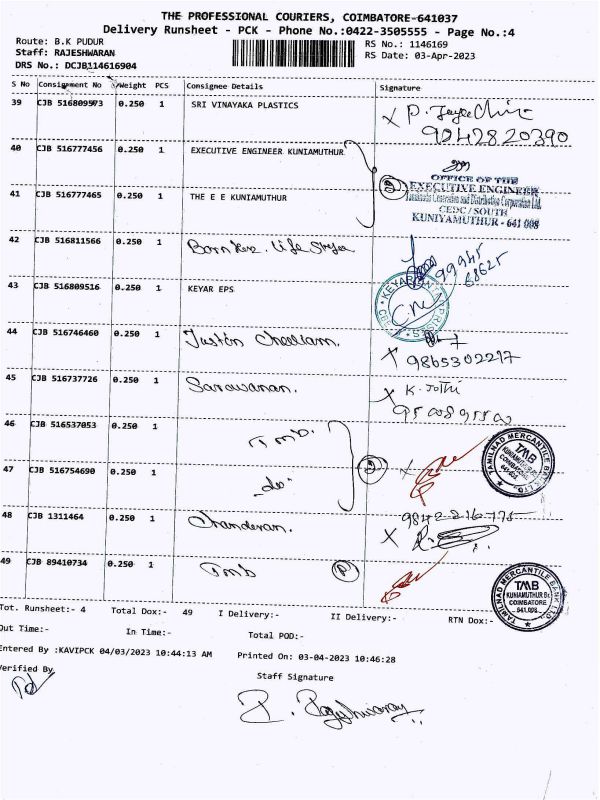 THE PROFESSIONAL COURIERS, COIMBATORE-641037
Delivery Runsheet - PCK - Phone No.:0422-3505555 - Page No.:4
Route: B.K PUDUR
RS No.: 1146169
Staff: RAJESHWARAN
RS Date: 03-Apr-2023
DRS No.: DCJB114616904
S No Consignment No Weight PCS Consignee Details Signature
39 CJB 516809973 0.250 1 SRI VINAYAKA PLASTICS
X P.
9042820390
40 CJB 516777456 0.250 1 EXECUTIVE ENGINEER KUNIAMUTHUR
OFFICE OF THE
EXECUTIVE ENGINEER
41 CJB 516777465 0.250 1 THE E E KUNIAMUTHUR
Tamilnadu Generation and Distribution Corporation Ltd.
CEDC / SOUTH
KUNIYAMUTHUR - 641 008
42 CJB 516811566 0.250 1 Life
99945
68625
43 CJB 516809516 0.250 1 KEYAR EPS
KEYAR ENTERPRISES CBE
44 CJB 516746460 0.250 1
X 9865302217
45 CJB 516737726 0.250 1 Sarawanan.
X K. Jothi
46 CJB 516537053 0.250 1 TMB.
TAMILNAD MERCANTILE BANK LTD.
TMB
KUNIAMUTHUR Br.
COIMBATORE
641 008
47 CJB 516754690 0.250 1 -do"
X
48 CJB 1311464 0.250 1 Chanderan.
9842-216775
X
49 CJB 89410734 0.250 1 TMB P
TAMILNAD MERCANTILE BANK LTD.
TMB
KUNIAMUTHUR Br.
COIMBATORE
641 008
Tot. Runsheet:- 4 Total Dox:- 49 I Delivery:- II Delivery:- RTN Dox:-
Out Time:- In Time:- Total POD:-
Entered By :KAVIPCK 04/03/2023 10:44:13 AM Printed On: 03-04-2023 10:46:28
Verified By
Staff Signature
P. Rajeshwaran